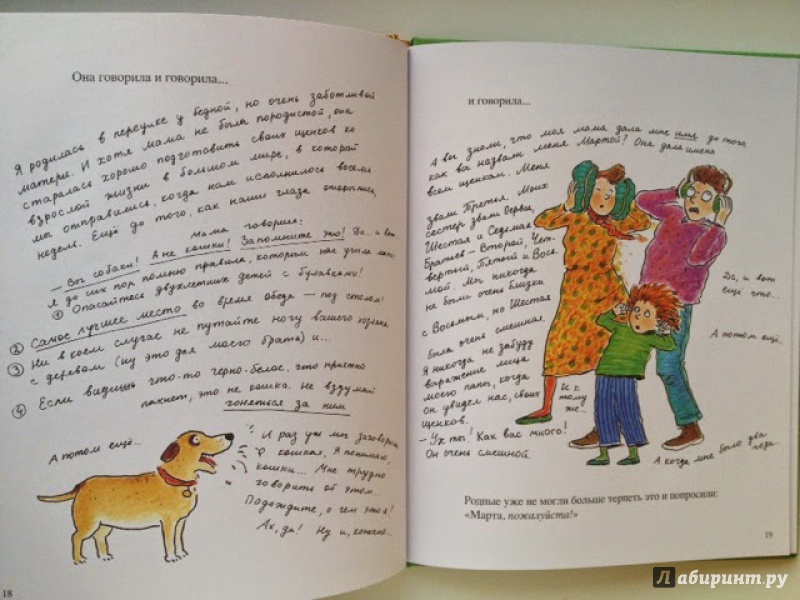 Она говорила и говорила...
Я родилась в переулке у бедной, но очень заботливой
матери. И хотя мама не была породистой, она
старалась хорошо подготовить своих щенков ко
взрослой жизни в большом мире, в который
мы отправились, когда нам исполнилось восемь
недель. Ещё до того, как наши глаза открылись,
мама говорила:
— Вы собаки! А не кошки! Запомните это! Да.. и вот
я до сих пор помню правила, которым нас учила мама:
① Опасайтесь двухлетних детей с булавками!
② Самое лучшее место во время обеда — под столом!
③ Ни в коем случае не путайте ногу вашего хозяина
с деревом (ну это для моего брата) и...
④ Если видишь что-то черно-белое, что приятно
пахнет, это не кошка. Не вздумай
гоняться за ним
А потом ещё...
И раз уж мы заговорили
о кошках, я понимаю,
кошки... Мне трудно
говорить об этом..
Подождите, о чем это я!
Ах, да! Ну и, конечно...
18
и говорила...
А вы знали, что моя мама дала мне имя до того,
как вы назвали меня Мартой? Она дала имена
всем щенкам. Меня
звали Третья. Моих
сестер звали Первая,
Шестая и Седьмая.
Братьев — Второй, Чет-
вертый, Пятый и Вось-
мой. Мы никогда
не были очень близки
с Восьмым, но Шестая
была очень смешная.
Я никогда не забуду
выражение лица
моего папы, когда
он увидел нас, своих
щенков.
— Ух ты! Как вас много!
Он очень смешной.
Да, и вот
ещё что...
А потом ещё..
И к
тому
же...
А когда мне было два
года..
Родные уже не могли больше терпеть это и попросили:
«Марта, пожалуйста!»
19
Лабиринт.ру